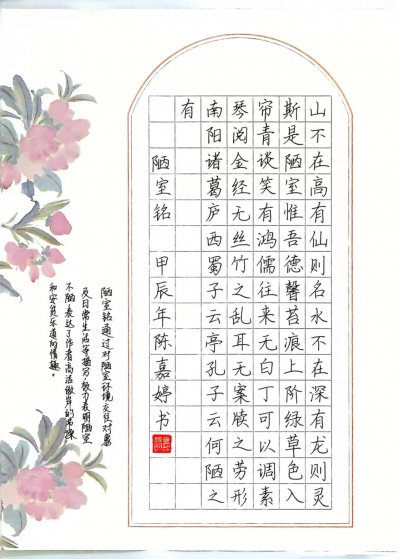 山不在高有仙则名水不在深有龙则灵
斯是陋室惟吾德馨苔痕上阶绿草色入
帘青谈笑有鸿儒往来无白丁可以调素
琴阅金经无丝竹之乱耳无案牍之劳形
南阳诸葛庐西蜀子云亭孔子云何陋之
有
陋室铭 甲辰年陈嘉婷书
陋室铭通过对陋室环境交往对象
及日常生活等描写极力表明陋室
不陋表达了作者高洁傲岸的节操
和安贫乐道的情趣。